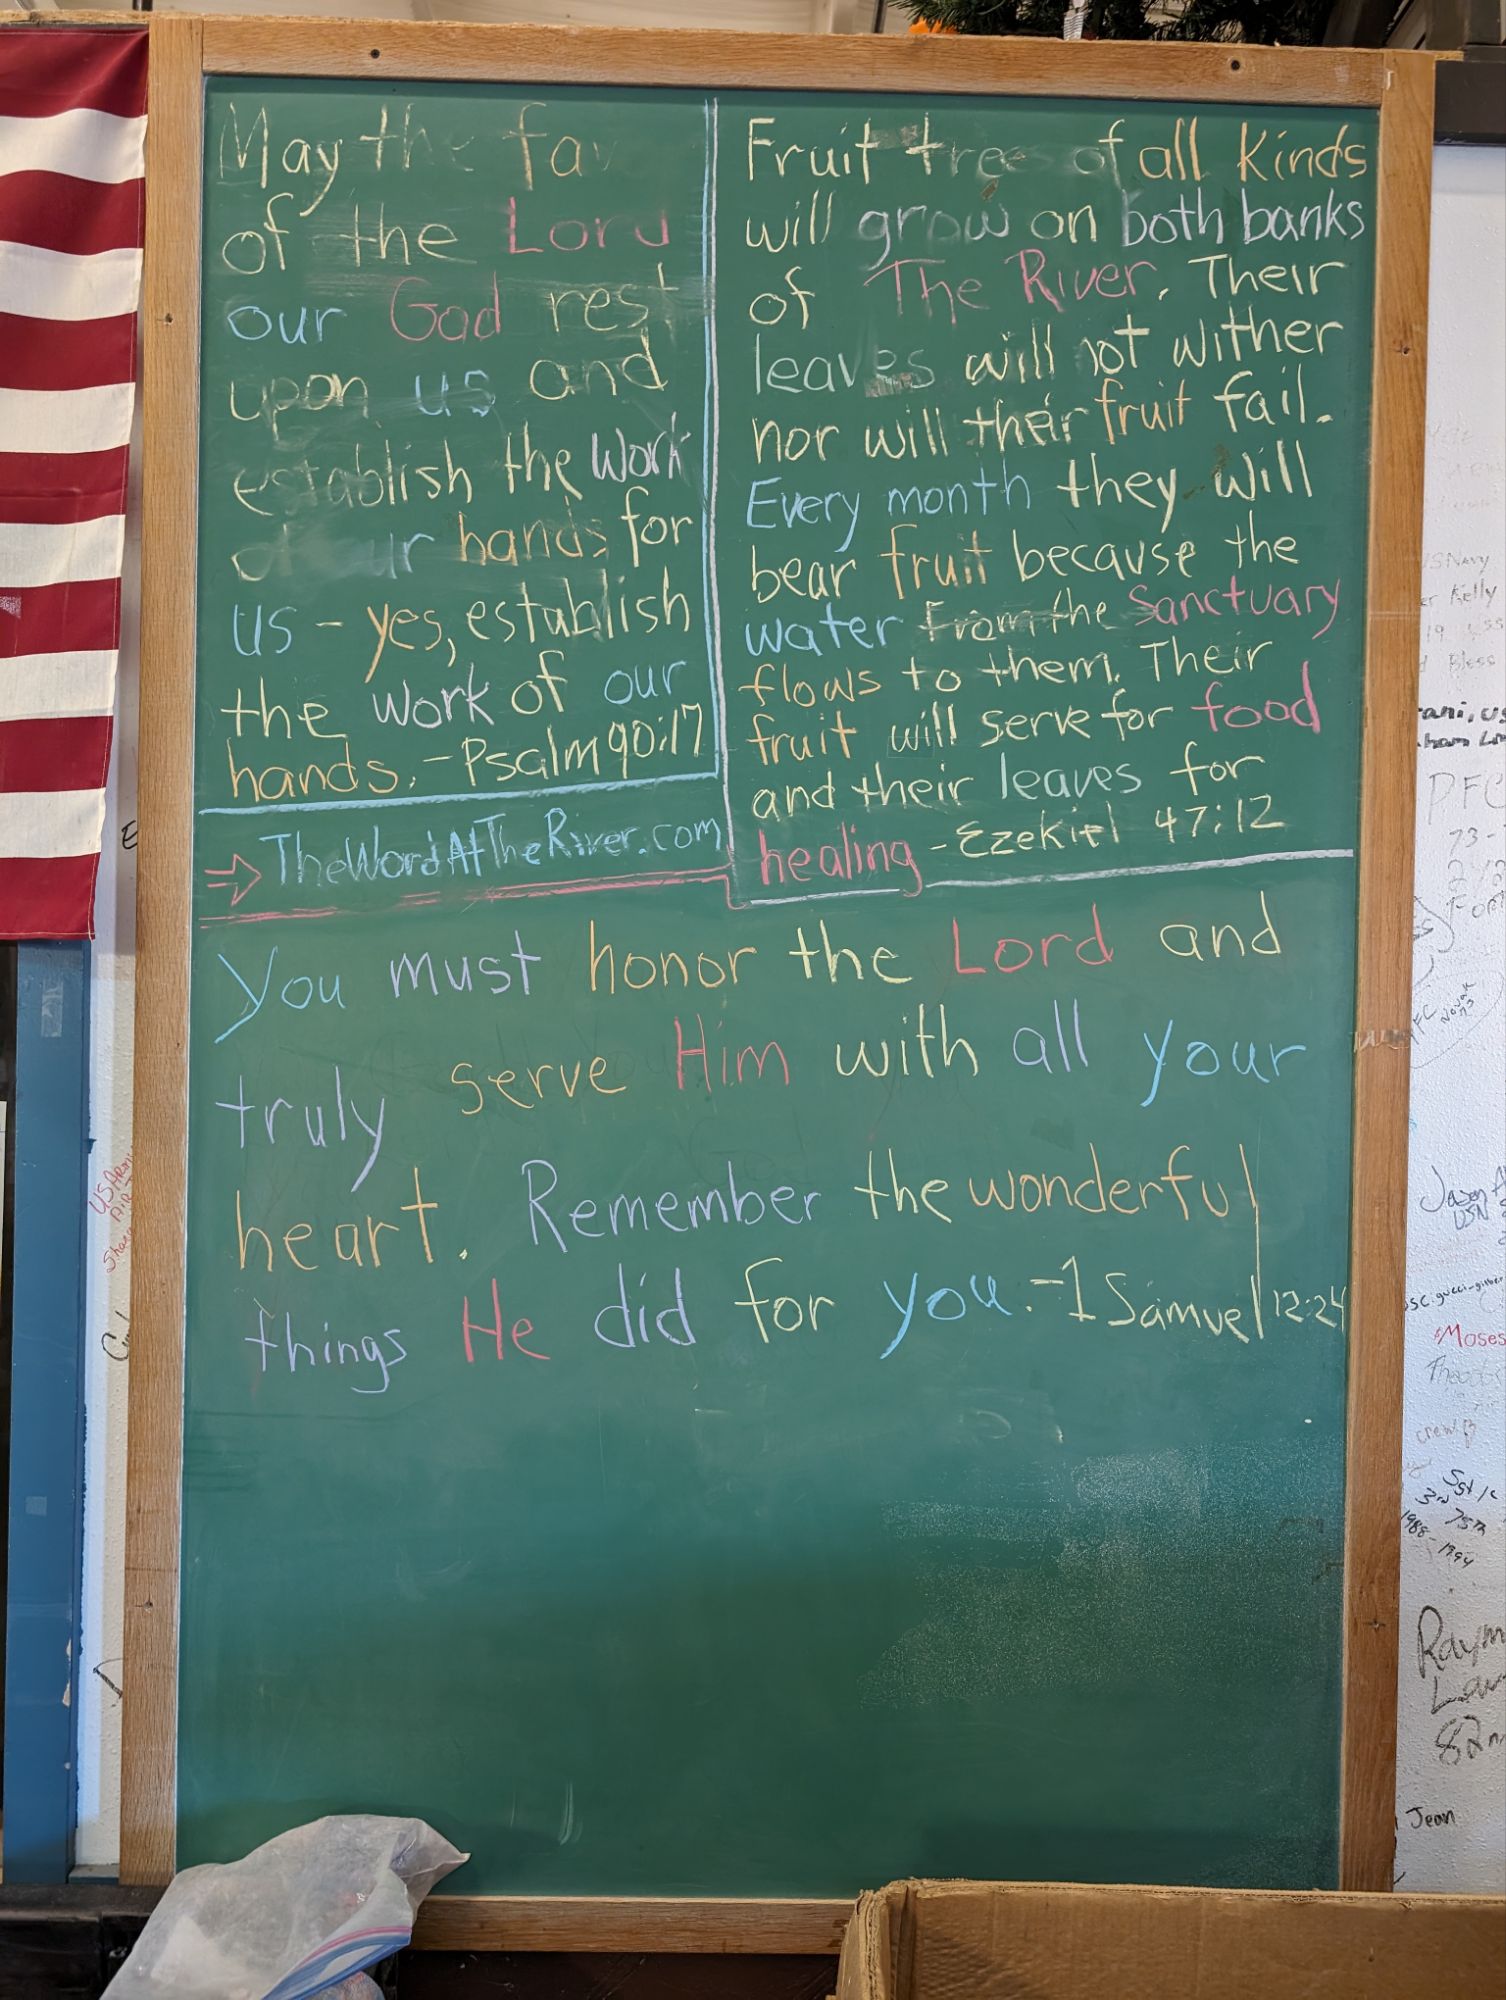 May the fav
of the Lord
our God rest
upon us and
establish the work
of our hands for
us - yes, establish
the work of our
hands. - Psalm 90:17
TheWordAtTheRiver.com
Fruit trees of all kinds
will grow on both banks
of The River. Their
leaves will not wither
nor will their fruit fail.
Every month they will
bear fruit because the
water from the Sanctuary
flows to them. Their
fruit will serve for food
and their leaves for
healing - Ezekiel 47:12
You must honor the Lord and
truly serve Him with all your
heart. Remember the wonderful
things He did for you. - 1 Samuel 12:24
Kelly
Bless
PFC
73-
Jason
USN
Moses
crew
75th
1988-1994
Raym
82n
Jean
US Army